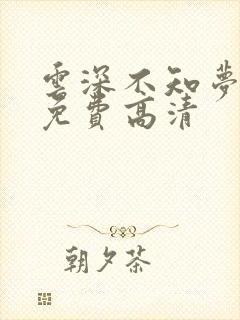 雲深不知夢
免費高清
朝夕茶